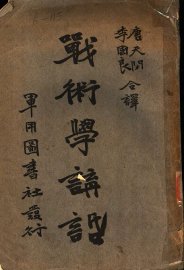 唐天
李國良
合譯
戰術學講話
軍用圖書社發行